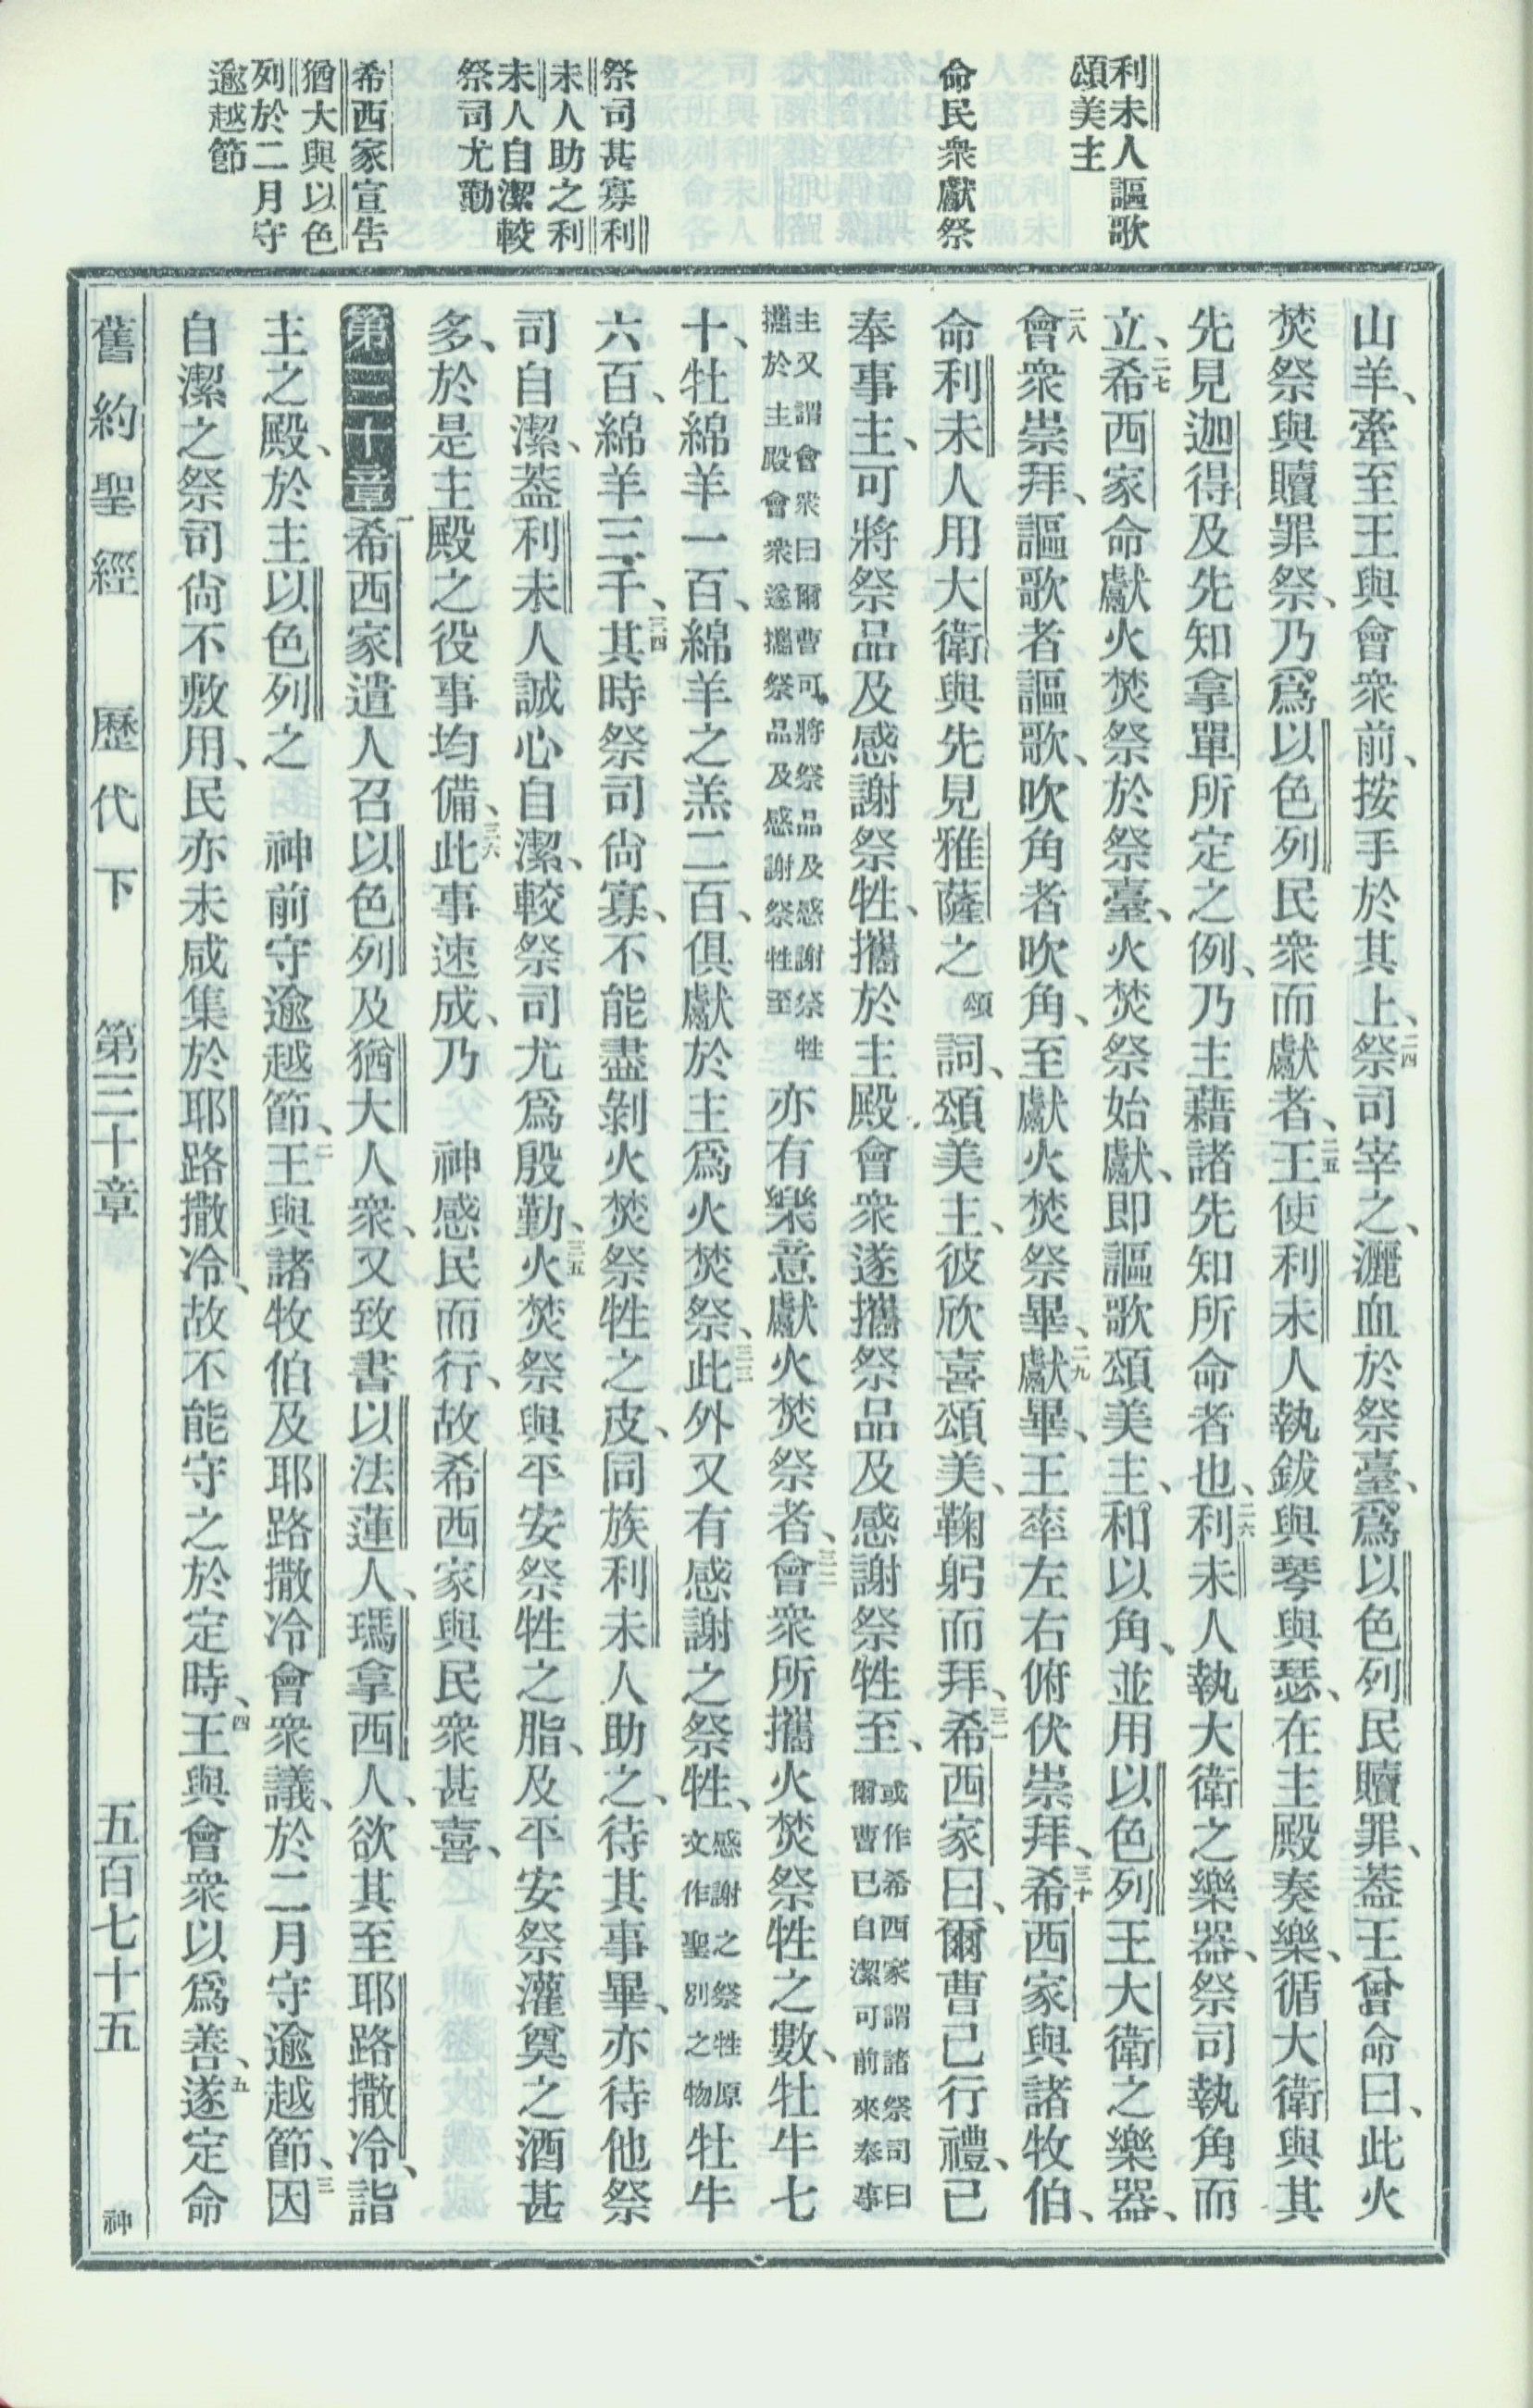 利未人謳歌
頌美主
命民衆獻祭
祭司甚寡利
未人助之利
未人自潔較
祭司尤勤
希西家宣告
猶大與以色
列於二月守
逾越節
山羊、牽至王與會衆前、按手於其上、二四祭司宰之、灑血於祭臺、爲以色列民贖罪、蓋王曾命曰、此火
焚祭與贖罪祭、乃爲以色列民衆而獻者、二五王使利未人執鈸與琴與瑟、在主殿奏樂、循大衛與其
先見迦得及先知拿單所定之例、乃主藉諸先知所命者也、二六利未人執大衛之樂器、祭司執角而
立、二七希西家命獻火焚祭於祭臺、火焚祭始獻、即謳歌頌美主、和以角、並用以色列王大衛之樂器、
二八會衆崇拜、謳歌者謳歌、吹角者吹角、至獻火焚祭畢、二九獻畢、王率左右俯伏崇拜、三十希西家與諸牧伯、
命利未人用大衛與先見雅薩之頌詞、頌美主、彼欣喜頌美、鞠躬而拜、三一希西家曰、爾曹已行禮、已
奉事主、可將祭品及感謝祭牲、攜於主殿會衆遂攜祭品及感謝祭牲至、或作希西家謂諸祭司曰爾曹已自潔可前來奉事
主又謂會衆曰爾曹可將祭品及感謝祭牲攜於主殿會衆遂攜祭品及感謝祭牲至亦有樂意獻火焚祭者、三二會衆所攜火焚祭牲之數、牡牛七
十、牡綿羊一百、綿羊之羔二百、俱獻於主爲火焚祭、三三此外又有感謝之祭牲、感謝之祭牲原文作聖別之物牡牛
六百、綿羊三千、三四其時祭司尙寡、不能盡剝火焚祭牲之皮、同族利未人助之、待其事畢、亦待他祭
司自潔、蓋利未人誠心自潔、較祭司尤爲殷勤、三五火焚祭與平安祭牲之脂、及平安祭灌奠之酒甚
多、於是主殿之役事均備、三六此事速成、乃　神感民而行、故希西家與民衆甚喜、
第三十章 一希西家遣人召以色列及猶大人衆、又致書以法蓮人、瑪拿西人、欲其至耶路撒冷、詣
主之殿、於主以色列之　神前守逾越節、二王與諸牧伯及耶路撒冷會衆議、於二月守逾越節、三因
自潔之祭司尙不敷用、民亦未咸集於耶路撒冷、故不能守之於定時、四王與會衆以爲善、五遂定命
舊約聖經　歷代下　第三十章　五百七十五　神